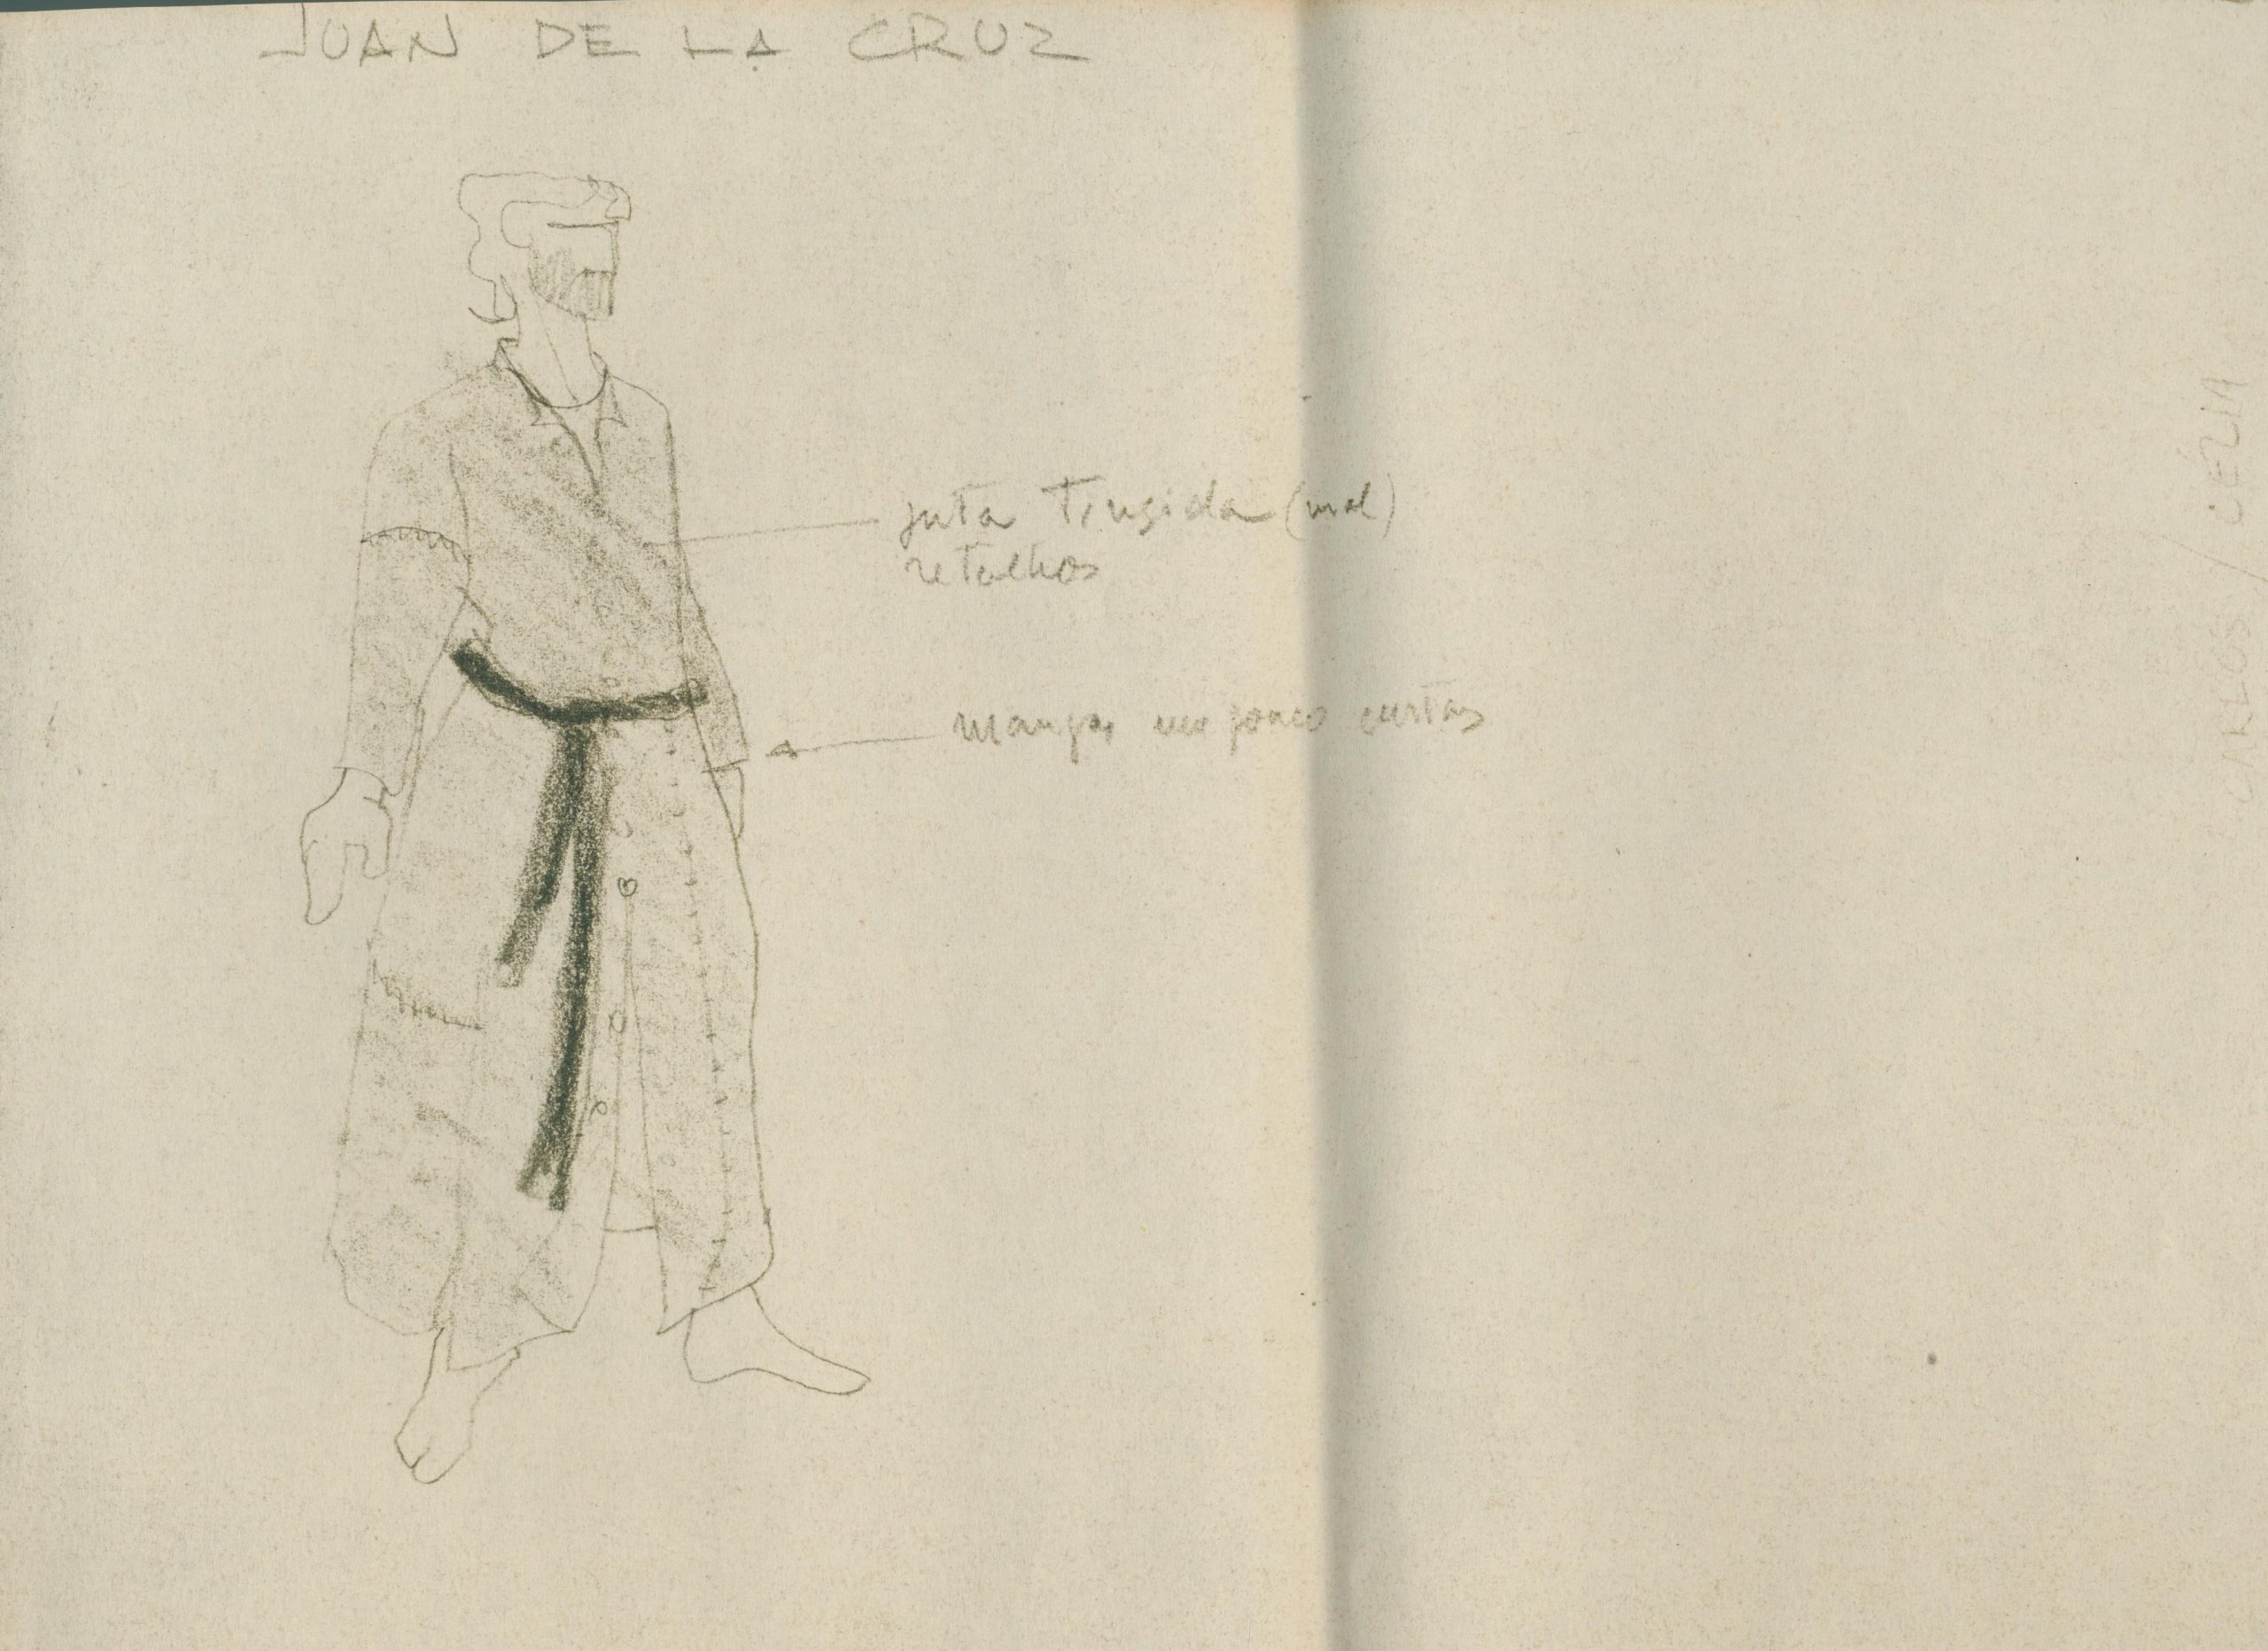 JUAN DE LA CRUZ
juta Tingida (mal)
retalhos
mangas um pouco curtas
/ CÉLIA